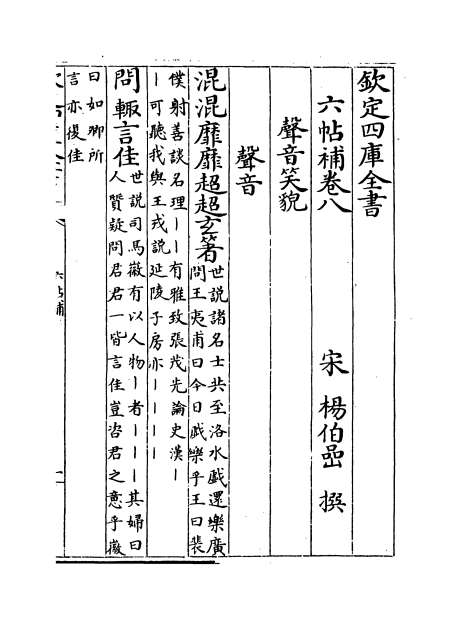 欽定四庫全書
六帖補卷八 宋 楊伯喦 撰
聲音笑貌
聲音
混混靡靡超超玄著
世說諸名士共至洛水戲還樂廣
問王夷甫曰今日戲樂乎王曰裴
僕射善談名理丨丨有雅致張茂先論史漢丨
丨可聽我與王戎說延陵子房亦丨丨丨丨
問輙言佳
世說司馬徽有以人物丨者丨丨丨其婦曰
人質疑問君君一皆言佳豈咨君之意乎徽
曰如卿所
言亦復佳
六帖補